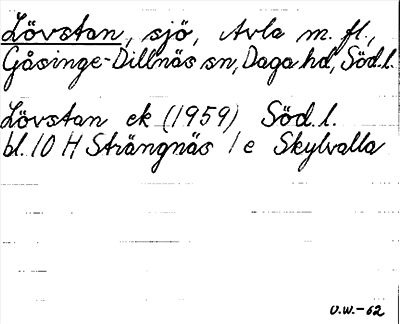 Lövstan, sjö, Avla m. fl.,
Gåsinge-Dillnäs sn, Daga hd, Söd.l.
Lövstan ek (1959) Söd. l.
bl. 10 H Strängnäs 1 e Skylvalla
U.W.-62